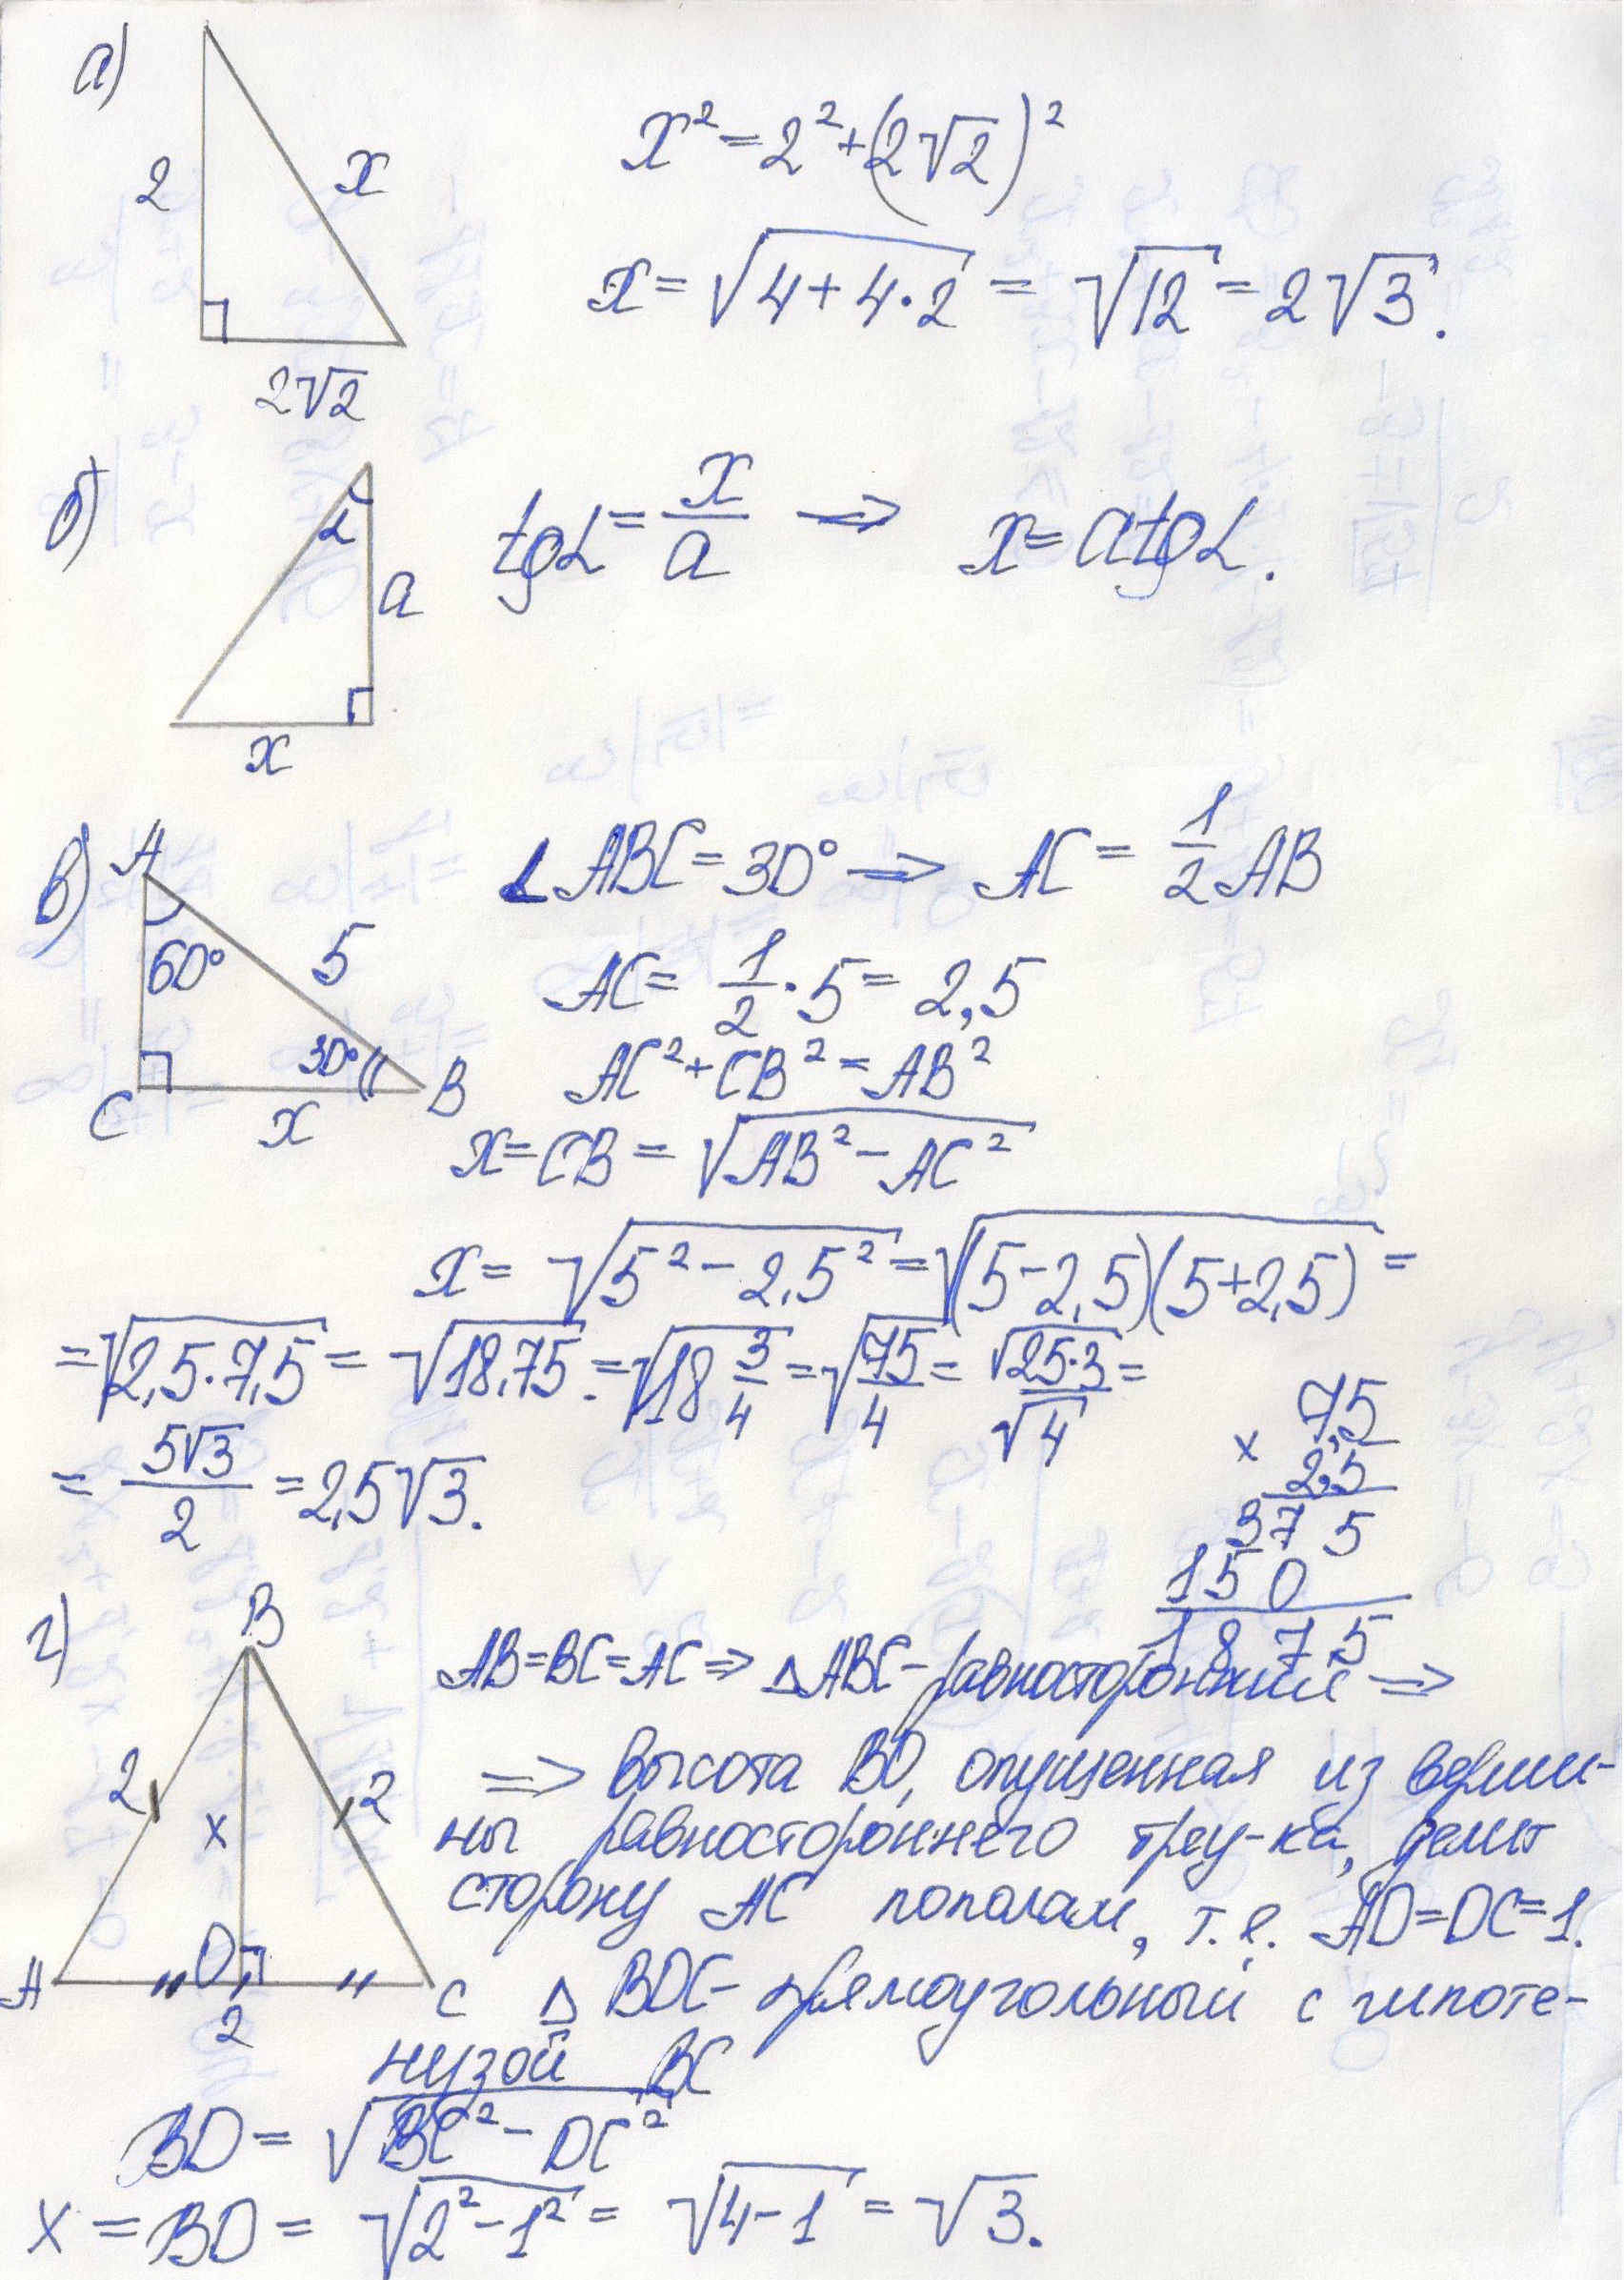 а)
2
x
2√2
x² = 2² + (2√2)²
x = √(4 + 4·2) = √12 = 2√3.
б)
α
a
x
tgα = x/a ⇒ x = a tgα.
в)
A
60°
5
30°
C
x
B
∠ABC = 30° ⇒ AC = 1/2 AB
AC = 1/2 · 5 = 2,5
AC² + CB² = AB²
x = CB = √(AB² − AC²)
x = √(5² − 2,5²) = √((5−2,5)(5+2,5)) =
= √(2,5·7,5) = √18,75 = √(18 3/4) = √(75/4) = √(25·3)/√4 =
= 5√3/2 = 2,5√3.
7,5
× 2,5
375
150
18 75
г)
B
2
x
2
A
D
C
2
AB=BC=AC ⇒ △ABC – равносторонний ⇒
⇒ высота BD, опущенная из верши-
ны равностороннего треу-ка, делит
сторону AC пополам, т.е. AD=DC=1.
△ BDC – прямоугольный с гипоте-
нузой BC
BD = √(BC² − DC²)
x = BD = √(2² − 1²) = √(4−1) = √3.